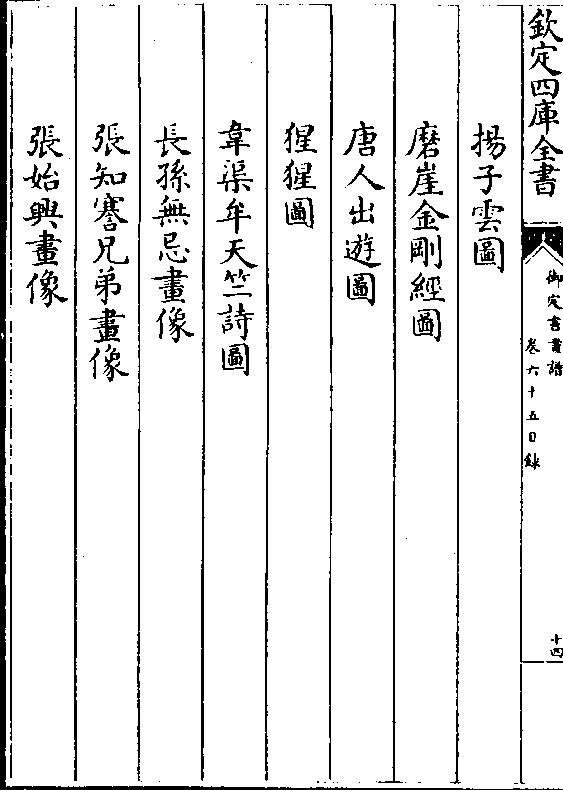 欽定四庫全書
御定書畫譜
卷六十五目錄
十四
揚子雲圖
磨崖金剛經圖
唐人出遊圖
猩猩圖
韋渠牟天竺詩圖
長孫無忌畫像
張知謇兄弟畫像
張始興畫像